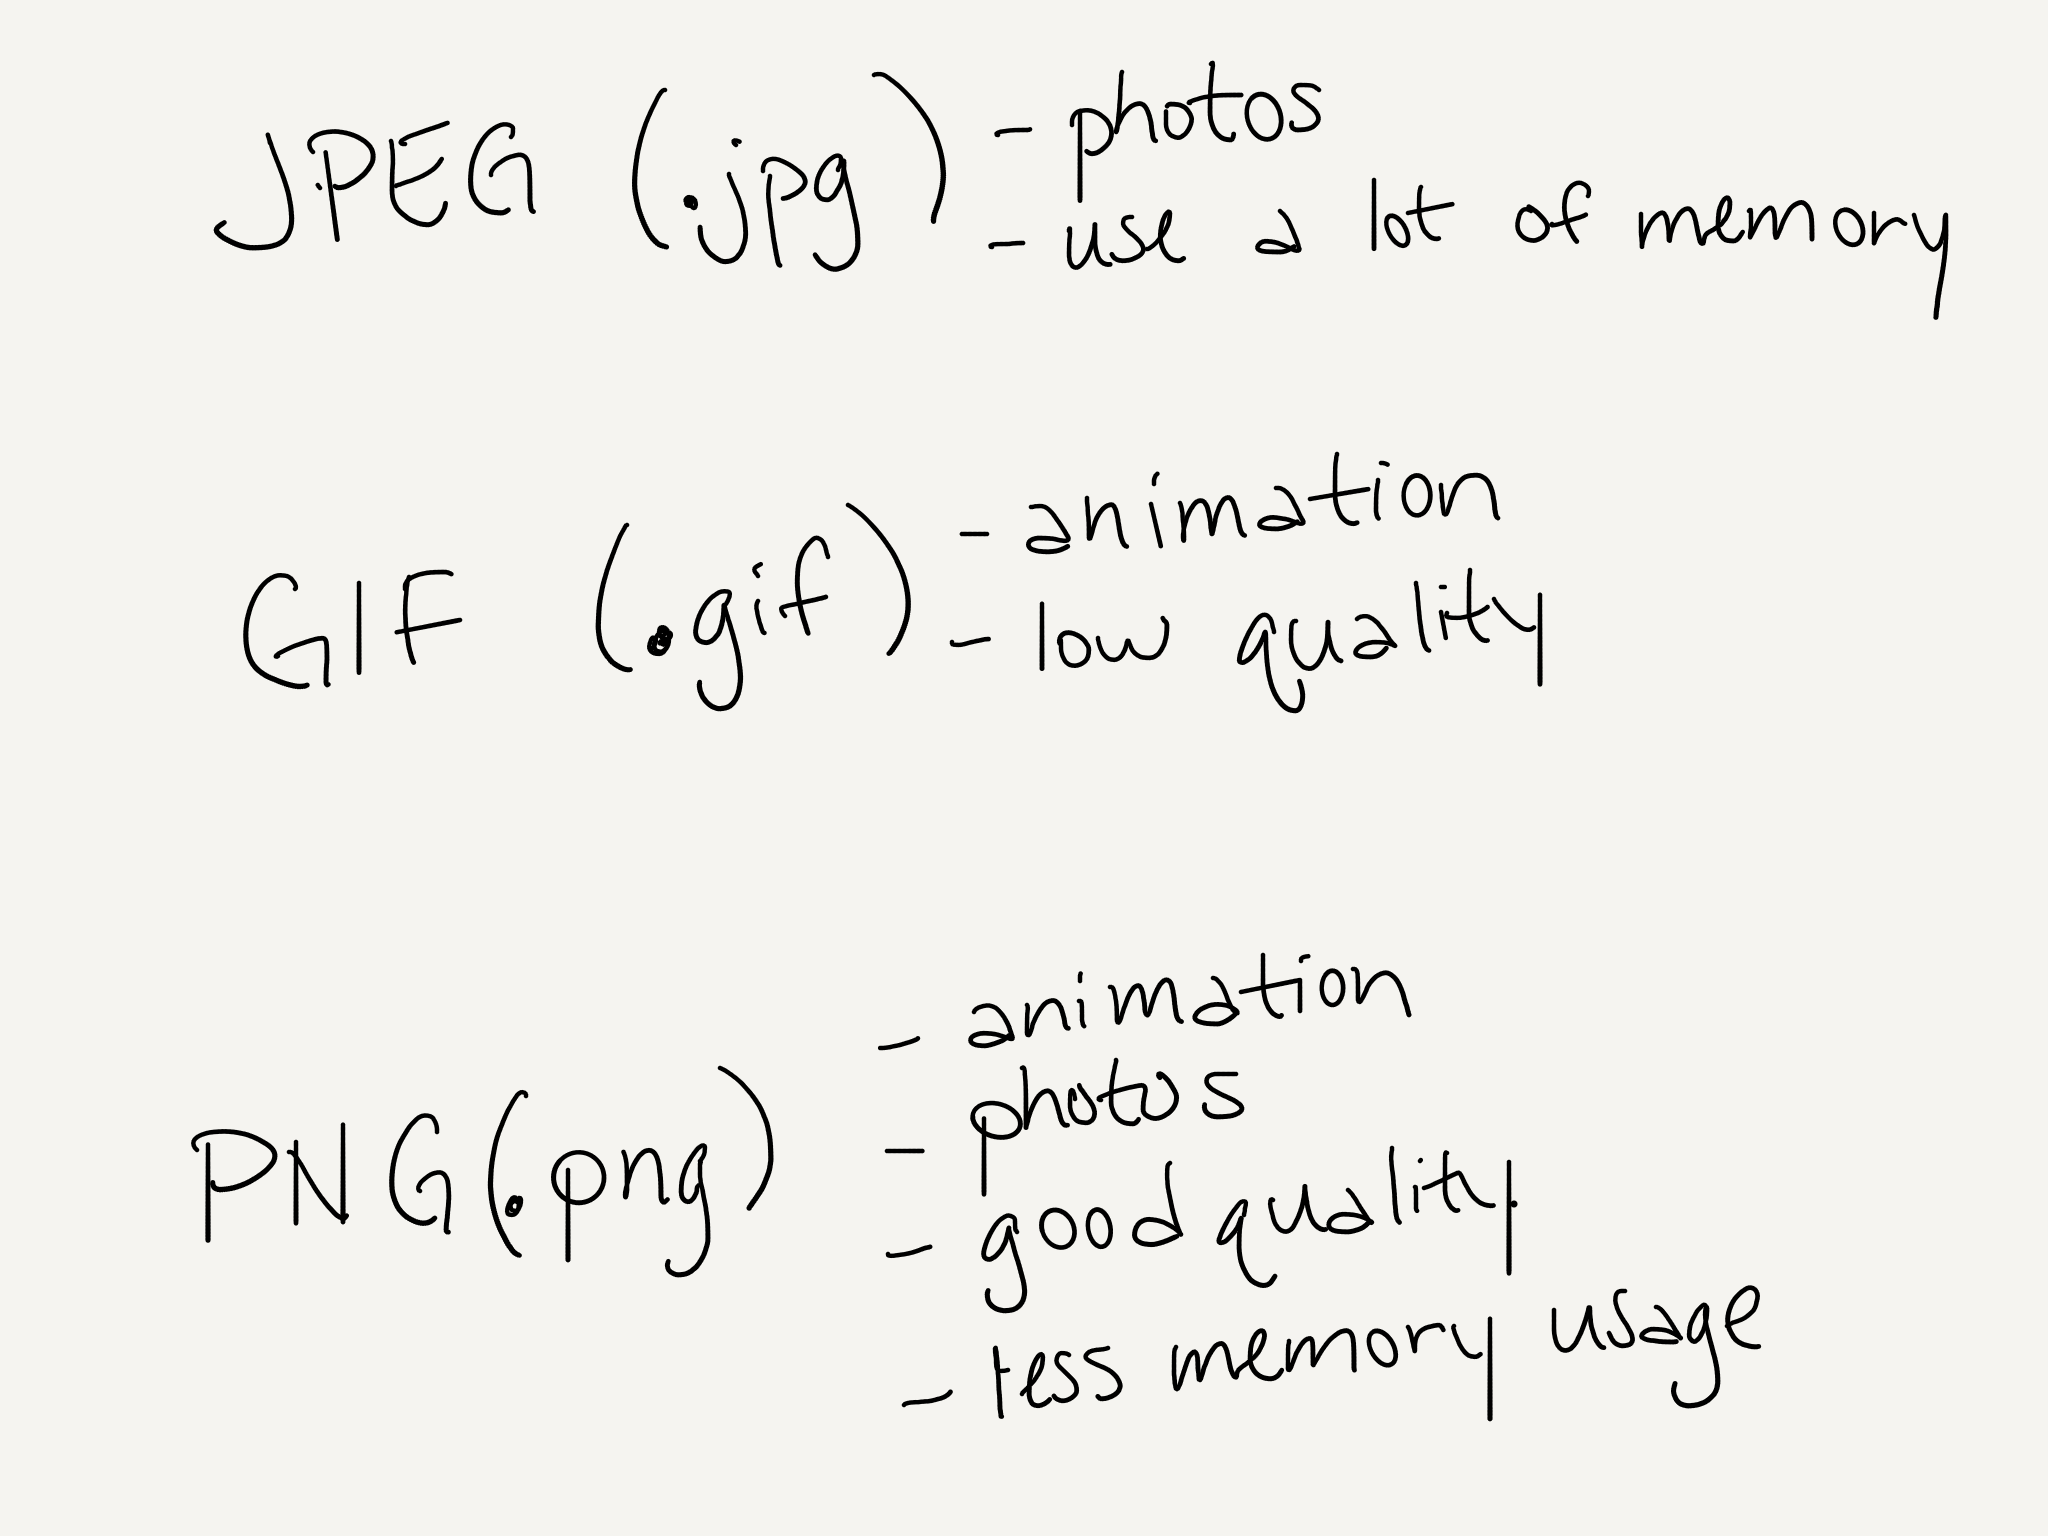 JPEG (.jpg) - photos
- use a lot of memory
GIF (.gif) - animation
- low quality
- animation
- photos
PNG (.png)
- good quality
- less memory usage